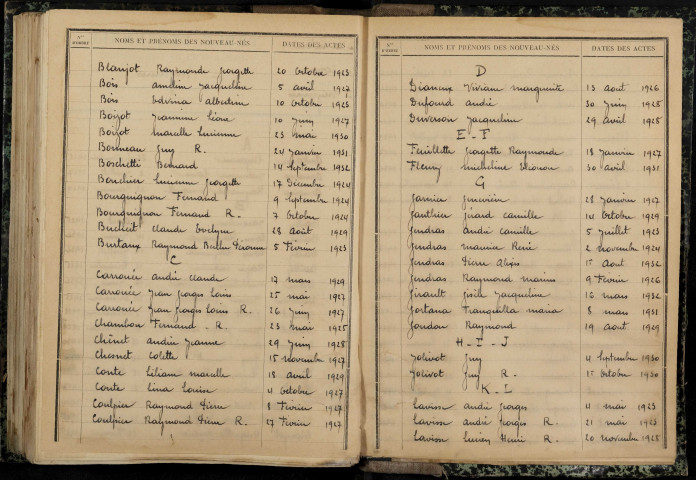 Nos D'ORDRE NOMS ET PRÉNOMS DES NOUVEAU-NÉS DATES DES ACTES
Blanjot Raymonde Georgette 20 Octobre 1923
Bois Jacqueline 5 avril 1927
Bois Edvina Albertine 10 Octobre 1925
Boizot Jeanne Léone 10 Juin 1927
Boizot Marcelle Lucienne 23 mai 1930
Bonneau Guy R. 24 Janvier 1931
Boschetti Bernard 14 Septembre 1932
Bouchier Lucienne Georgette 17 Décembre 1924
Bourguignon Fernand 9 Septembre 1924
Bourguignon Fernand R. 7 Octobre 1924
Claude Evelyne 28 août 1929
Burtaux Raymond 5 Février 1923
C
Carrouée André Claude 17 mars 1929
Carrouée Jean Georges Louis 25 mai 1927
Carrouée Jean Georges Louis R. 26 Juin 1927
Chambon Fernand . R. 23 mai 1925
Chênet Andrée Jeanne 29 Juin 1928
Chesnet Colette 15 novembre 1927
Conte Liliane Marcelle 18 avril 1929
Conte Lina Louise 4 Octobre 1927
Coulpier Raymond Pierre 8 Février 1927
Coulpier Raymond Pierre R. 27 Février 1927
Nos D'ORDRE NOMS ET PRÉNOMS DES NOUVEAU-NÉS DATES DES ACTES
D
Viviane Marguerite 13 août 1926
Dufond André 30 Juin 1928
Duverson Jacqueline 29 avril 1928
E - F
Feuillette Georgette Raymonde 18 Janvier 1927
Fleury 30 avril 1931
G
Garnier Geneviève 28 Janvier 1927
Gauthier Gérard Camille 14 Octobre 1929
Gendras André Camille 5 Juillet 1923
Gendras Maurice René 2 novembre 1924
Gendras Pierre Alexis août 1932
Gendras Raymond Marius 9 Février 1926
Girault Gisèle Jacqueline 16 mars 1932
Gortana Tranquilla Maria 8 mars 1931
Gourdon Raymond 19 août 1929
H - I - J
Jolivot Guy 4 Septembre 1930
Jolivot Guy R. Octobre 1930
K - L
Lavisse André Georges 4 mai 1923
Lavisse André Georges R. 21 mai 1923
Lavisse Lucien Henri R. 20 novembre 1928